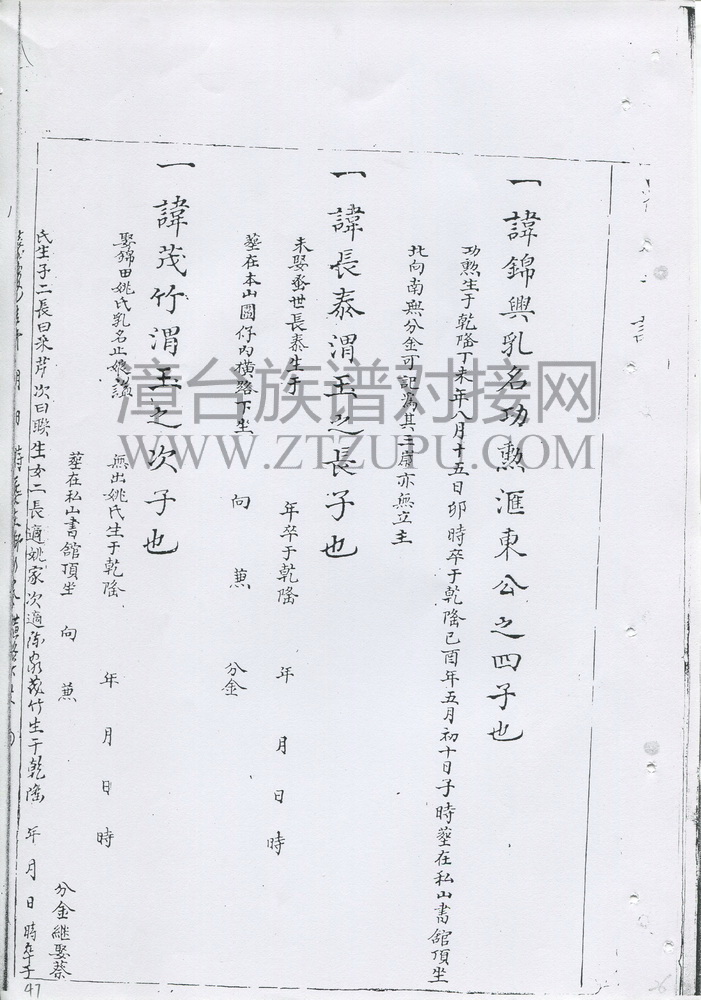 一諱錦興乳名功勲滙東公之四子也
功勲生于乾隆丁未年八月十五日卯時卒于乾隆己酉年五月初十日子時塟在私山書舘頂坐
北向南無分金可記為其三歲亦無立主
一諱長泰渭玉之長子也
未娶叁世長泰生于 年卒于乾隆 年 月 日 時
塟在本山園仔內橫路下坐 向 蒹 分金
一諱茂竹渭玉之次子也
娶錦田姚氏乳名止娘謚 無出姚氏生于乾隆 年 月 日 時
塟在私山書舘頂坐 向 蒹 分金繼娶蔡
氏生子二長曰采芹次曰聯生女二長適姚家次適陈家茂竹生于乾隆 年 月 日 時卒于
月 日 時
47
漳台族谱对接网
WWW.ZTZUPU.COM